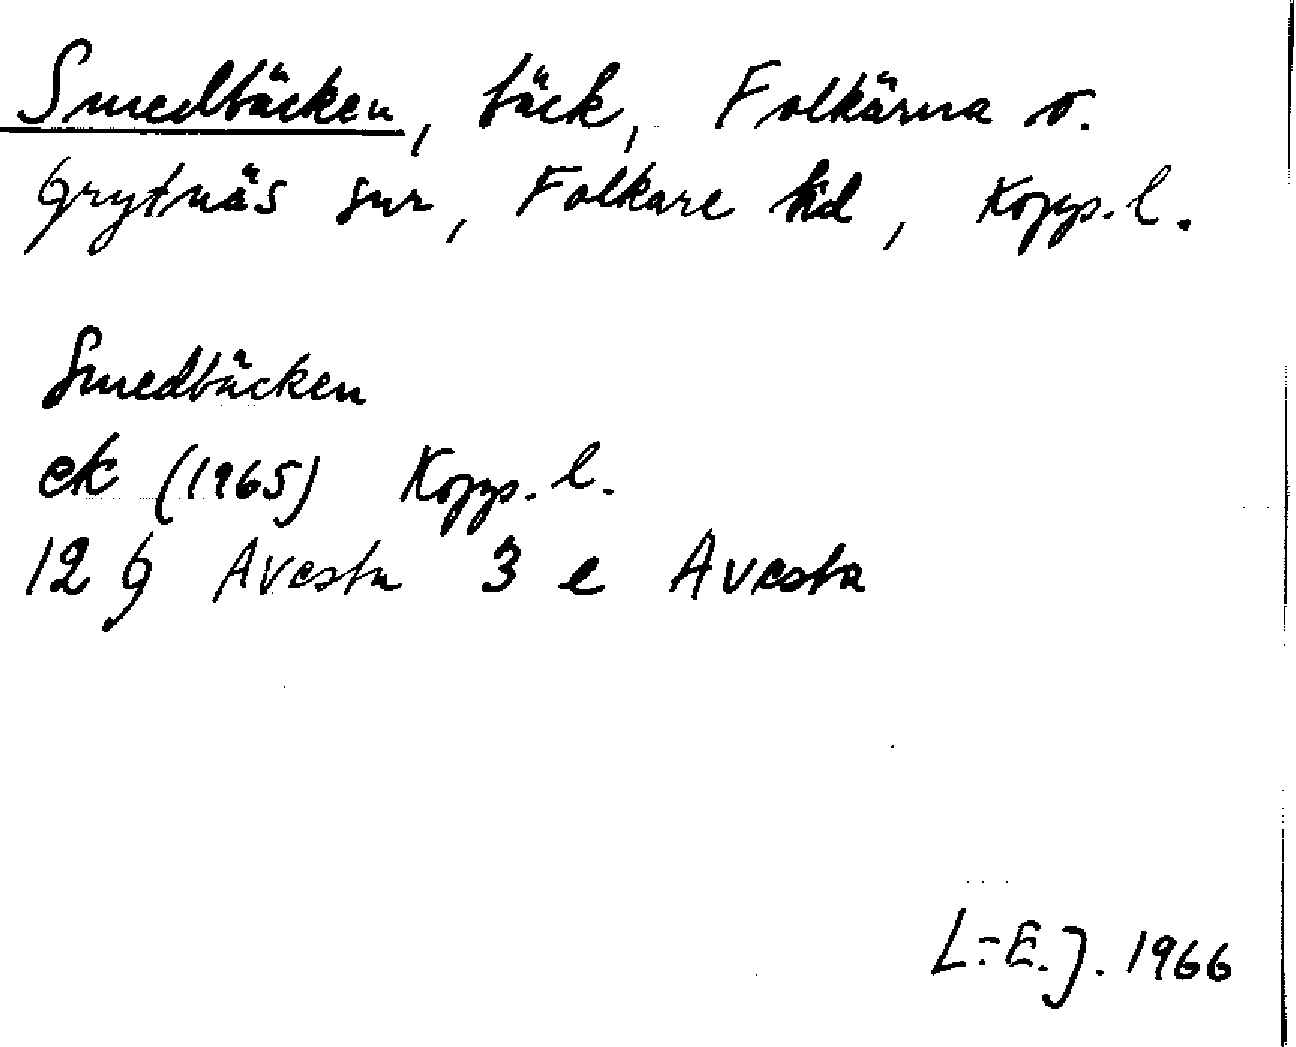 Smedbäcken, bäck, Folkärna o.
Grytnäs snr, Folkare hd, Kopp. l.
Smedbäcken
ek (1965) Kopp. l.
12 G Avesta 3 e Avesta
L-E. J. 1966